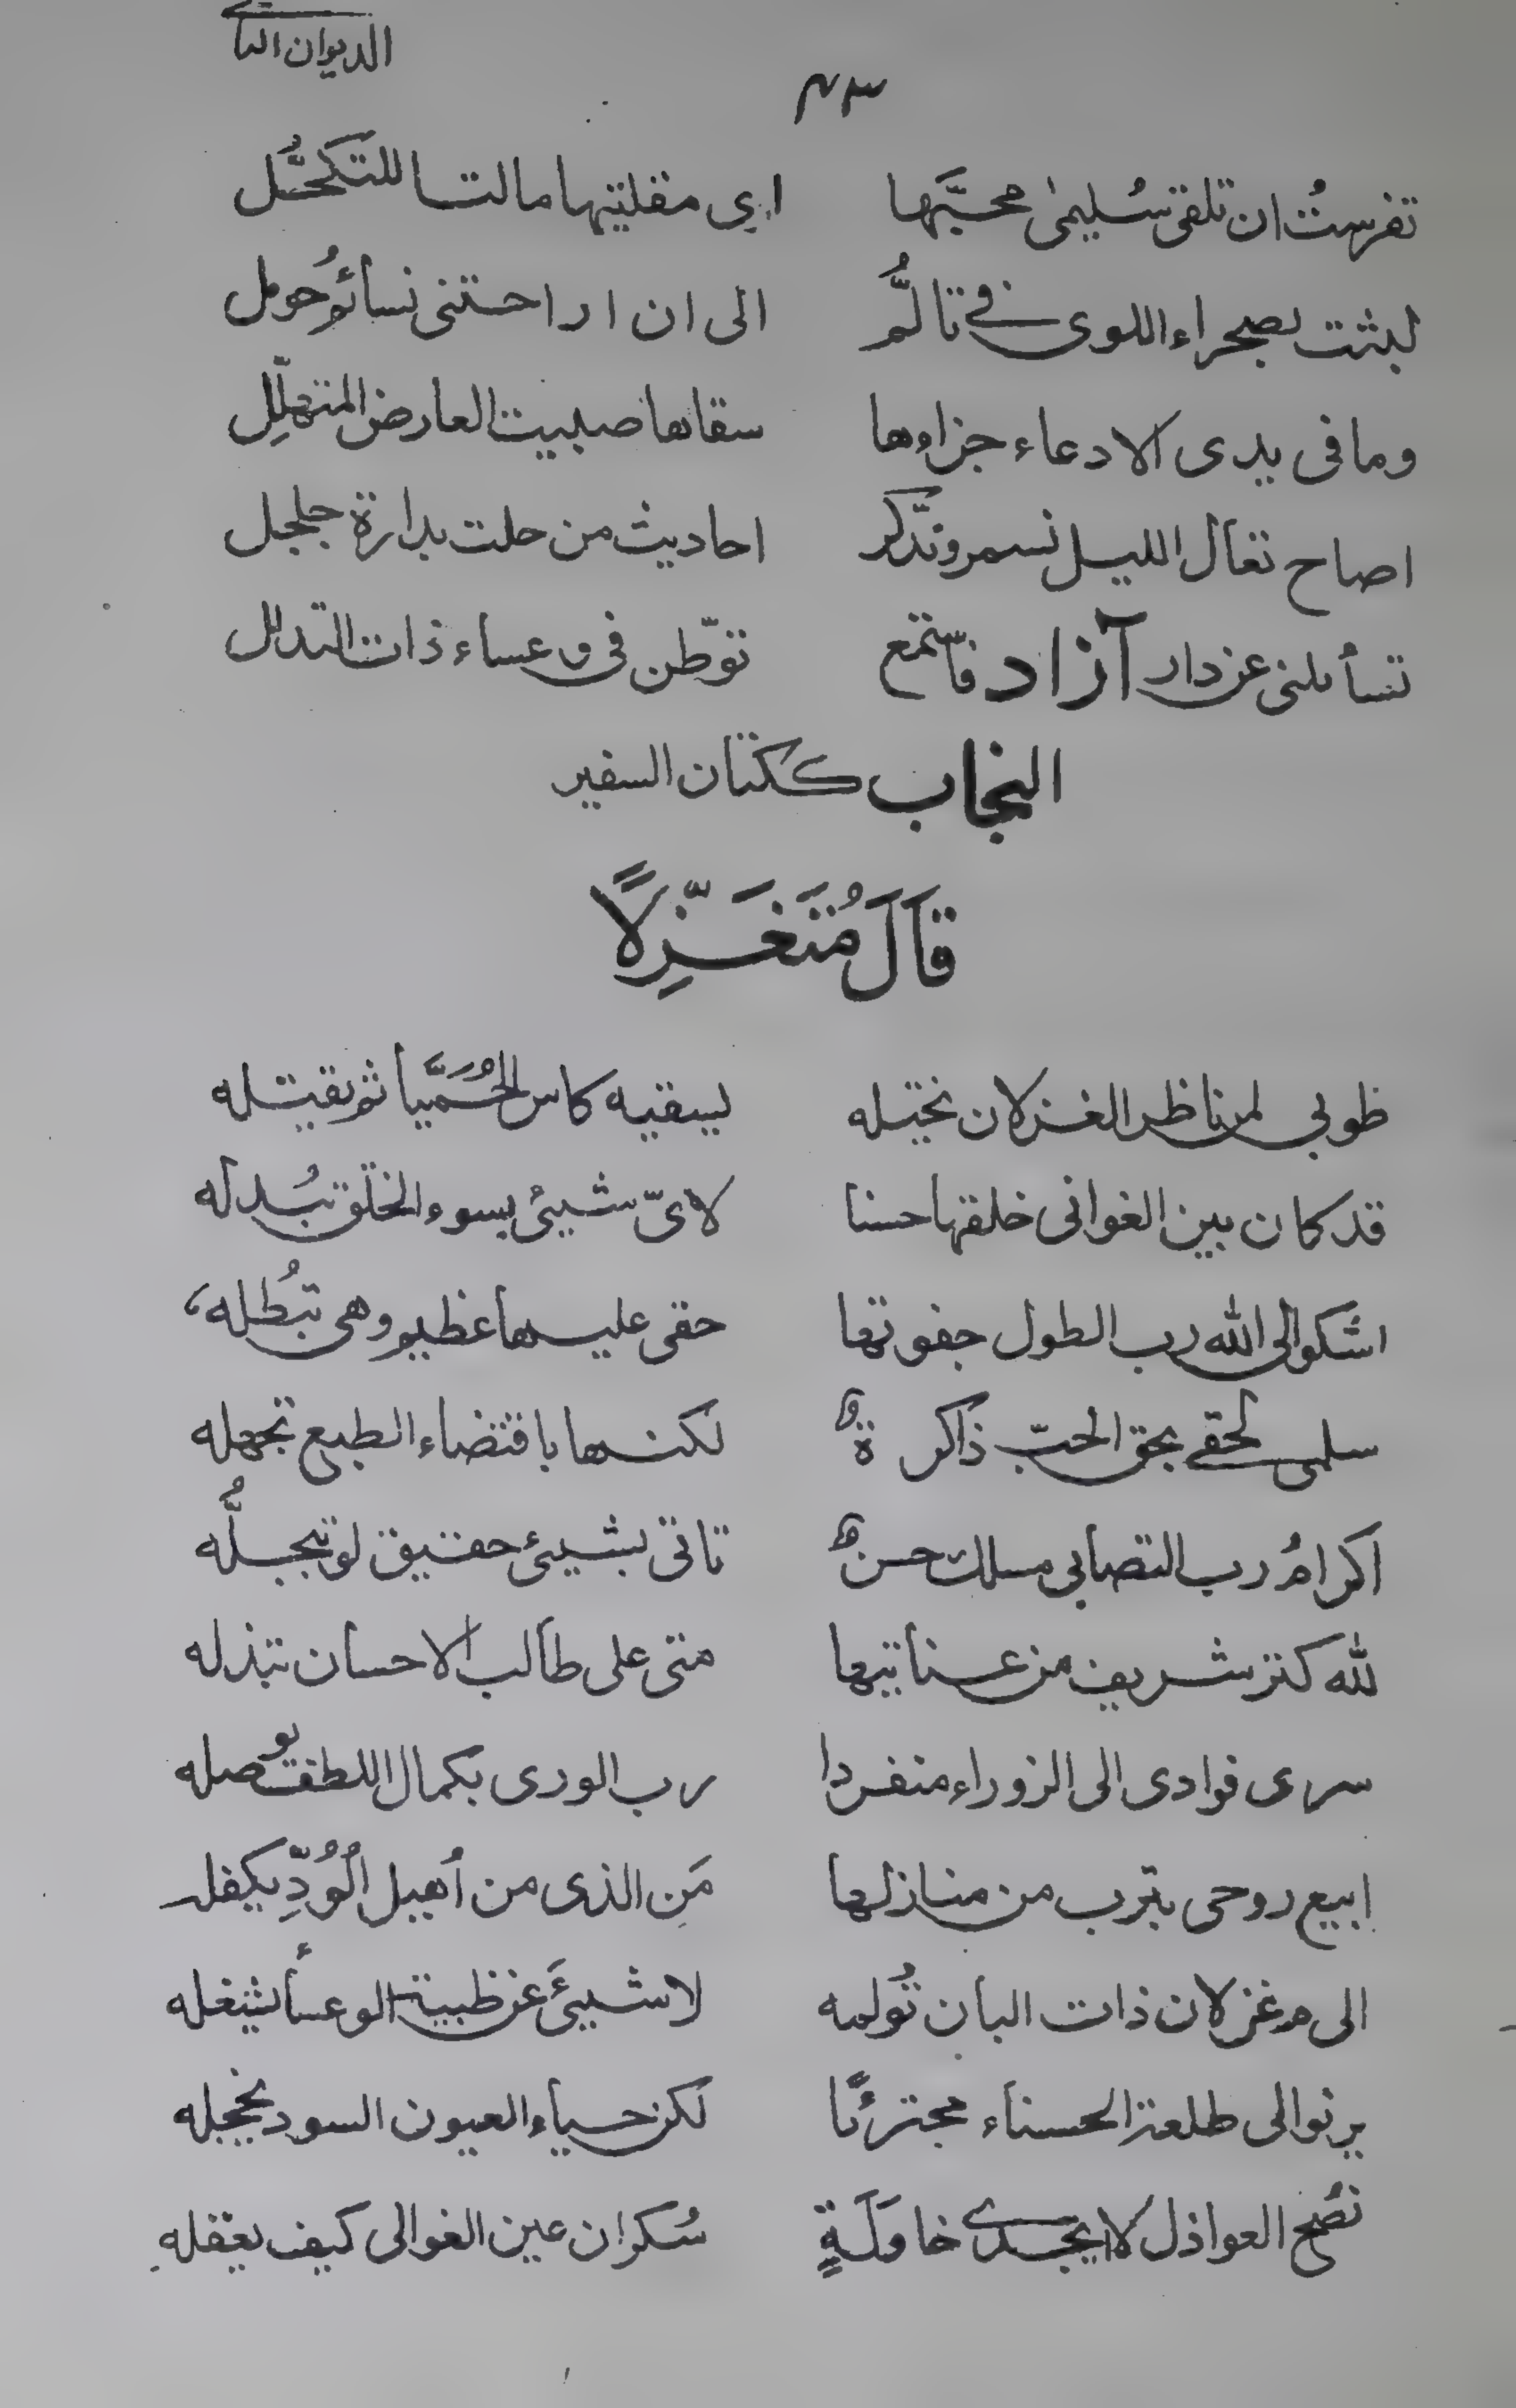 الديوان الثانى
٤٣
تفرستُ ان تلقى سُليمىٰ محبَّها ارى مقلتيها مالتا للتَكحُّل
لبثت بصحراء اللوى فى تالُّم الى ان اراحتنى نسائمُ حومل
وما فى يدى الا دعاء جزاءها سقاها صبيب العارض المتهلِّل
اصاح تعال الليل نسمر ونذَّكر احاديث من حلت بدارة جلجل
تسأىلنى عن دار آزاد فاستّمع توّطن فى وعساء ذات التدلل
النجاب ككتان السفير
قَالَ مُتَغَزِّلًا
طوبى لمن ناظر الغزلان يختله يسقيه كاس الحُمَيَّا ثم يقتله
قد كان بين الغوانى خلقها حسنا لاىّ شيئ بسوء الخلق تُبدله
اشكو الى الله رب الطول جفوتها حقى عليها عظيم وهى تُبطله
سلمى لحقى بحق الحبّ ذاكرةٌ لكنها باقتضاء الطبع تجهله
اكرامُ رب التصابى مسلك حسنٌ تاتى بشيئ حقيق لو تبجّلُه
لله كنز شريف من عنايتها متى على طالب الاحسان تبذله
سرى فوادى الى الزوراء منفردا رب الورى بكمال اللطف يوصله
ابيع روحى بترب من منازلها مَن الذى من أهيل الُوُدِّ يكفله
الى م غزلان ذات البان تُولمه لا شيئَ عن ظبية الوعسأ يشغله
يرنو الى طلعة الحسناء مجترئًا لكن حياء العيون السود يخجله
نُصح العواذل لا يجدى خاوَلَةٍ سُكران عين الغوالى كيف يعقلهِ